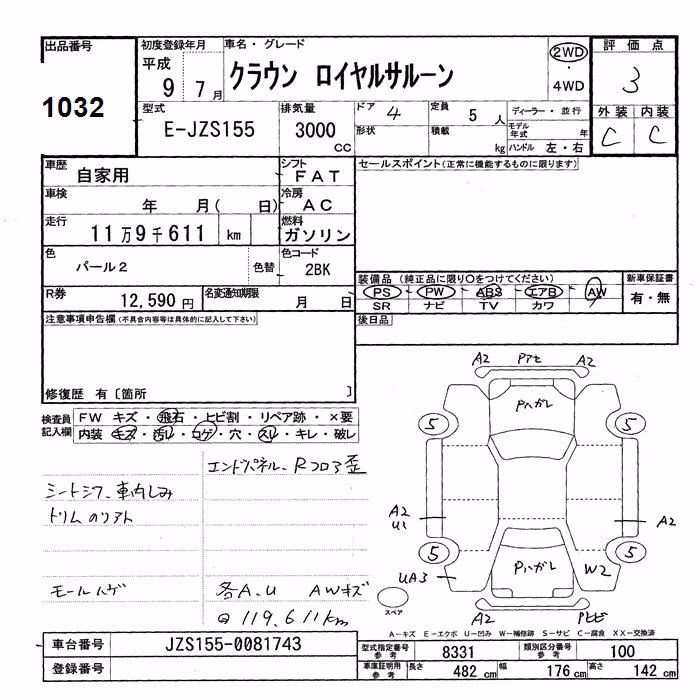 出品番号
1032
初度登録年月
平成
9 7月
車名・グレード
クラウン ロイヤルサルーン
2WD
・
4WD
評価点
3
外装 内装
C C
型式
E-JZS155
排気量
3000
CC
ドア 4
定員 5人
形状
積載 kg
ディーラー・並行
モデル年式 年
ハンドル 左・右
車歴
自家用
シフト
FAT
車検
年 月( 日)
冷房
AC
走行
11万9千611 km
燃料
ガソリン
色
パール2
色替
色コード
2BK
R券
12,590円
名変通知期限
月 日
セールスポイント(正常に機能するものに限ります)
装備品 (純正品に限り○をつけてください)
PS・PW・ABS・エアB・AW
SR ナビ TV カワ
新車保証書
有・無
後日品
注意事項申告欄(不具合内容等は具体的に記入して下さい)
修復歴 有〔箇所 〕
検査員
記入欄
FW キズ・飛石・ヒビ割・リペア跡・×要
内装 キズ・汚レ・コゲ・穴・スレ・キレ・破レ
エンドパネル、Rフロア歪
シートシワ、車内しみ
トリム
モールハゲ
各A.U AWキズ
119,611km
A2 A2
Pハガレ
5 5
A2
U1
A2
5 5
UA3
Pハガレ
W2
スペア
A2
A-キズ E-エクボ U-凹み W-補修跡 S-サビ C-腐食 XX-交換済
車台番号
JZS155-0081743
登録番号
型式指定番号
参考
8331
類別区分番号
参考
100
車庫証明用
参考
長さ 482cm
幅 176cm
高さ 142cm